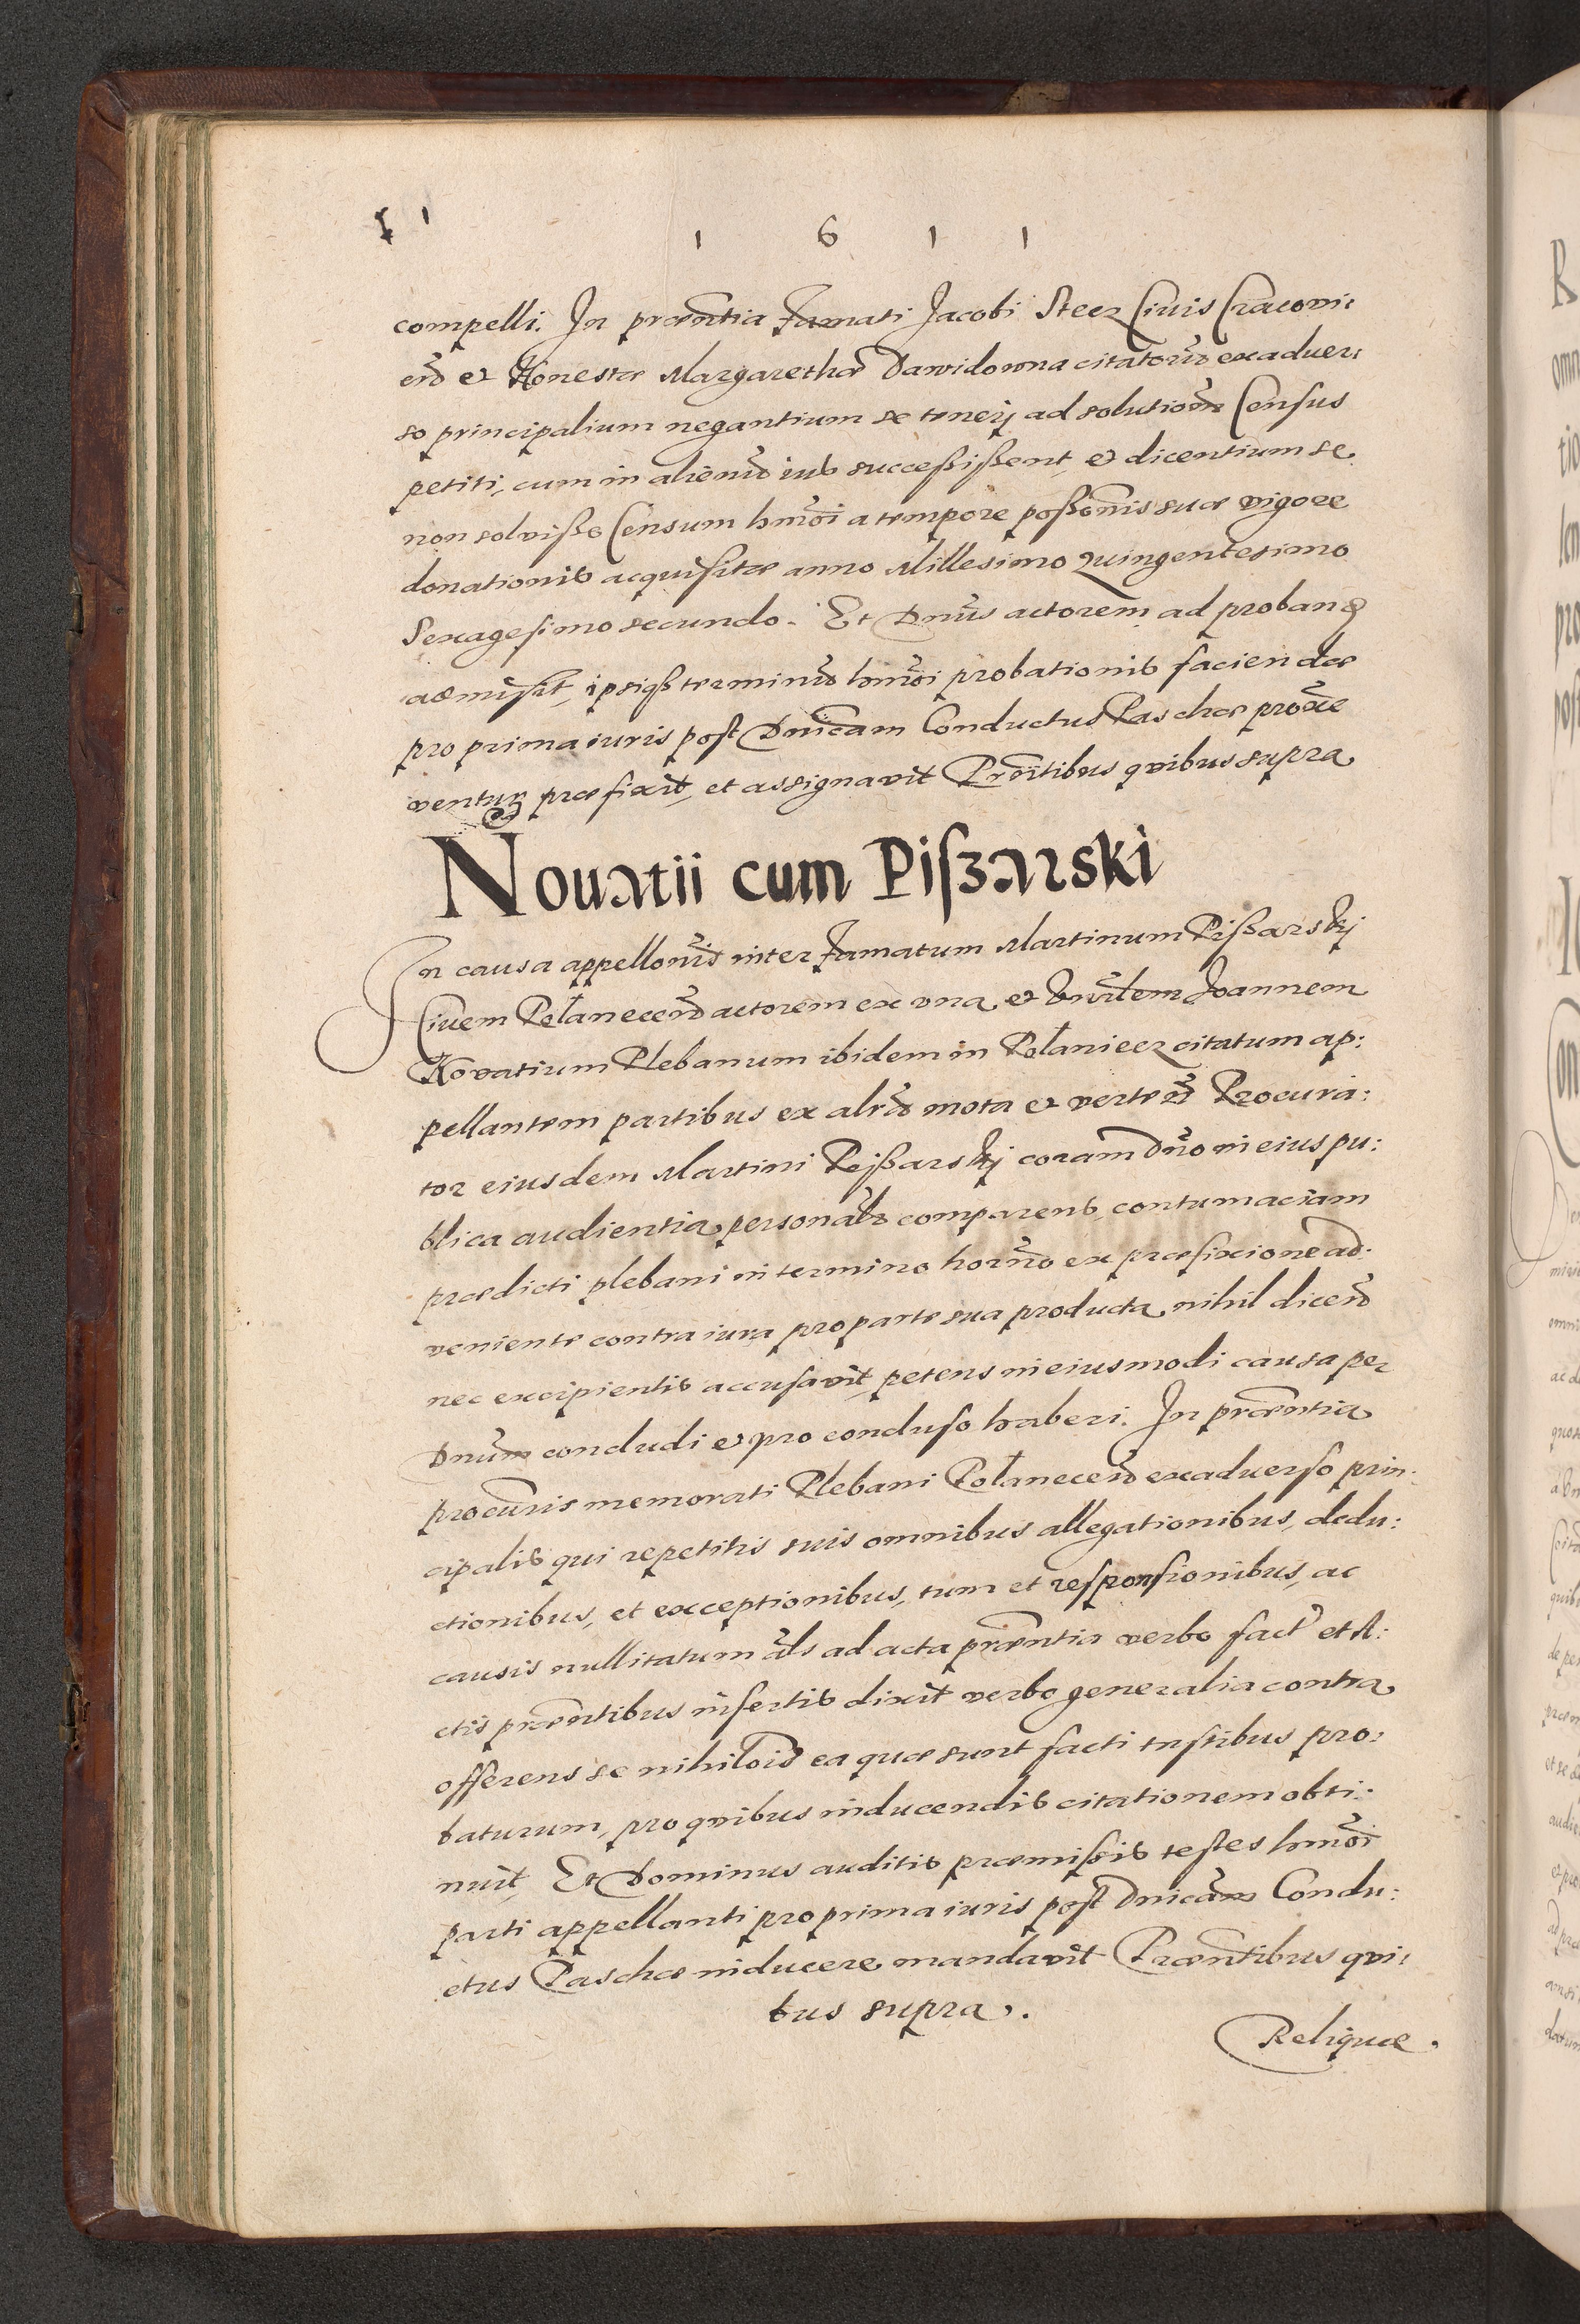 1 6 1 1
compelli. In præntia Famati Jacobi Steer Ciuis Cracovi:
en̄ et Honestæ Margarethæ Dawidowna citatorū exaduer:
so principalium negantium se tenerj ad solutionē Census
petiti, cum in alienū ius successissent, et dicentium se
non solvisse Censum hmōi a tempore possōnis suæ vigore
donationis acquisitæ anno Millesimo Quingentesimo
Sexagesimo secundo. Et Dnūs actorem ad proband
admisit, ipsiqз terminū hmōi probationis faciendæ
pro prima iuris post Dnīcam Conductus Paschæ proxīe
ventur præfixit, et assignavit Prōītibus qvibus supra
Nouatii cum Piszarski
In causa appellonīs inter Famatum Martinum Pißarskj
Ciuem Połanecen̄ actorem ex vna et Vnrilem Joannem
Novatium Plebanum ibidem in Połaniecz citatum ap:
pellantem partibus ex alrā mota et verten̄ Procura:
tor eiusdem Martini Pißarskj coram Dn̄o in eius pu:
blica audientia personalr comparens, contumaciam
prædicti plebani in termino horno ex præfixione ad:
veniente contra iura pro parte sua producta nihil dicen̄
nec excipientis accusavit, petens in eiusmodi causa per
Dnūm concludi et pro concluso haberi. In præntia
procūris memorati Plebani Połanecen̄ exaduerso prin:
cipalis qui repetitis suis omnibus allegationibus, dedu:
ctionibus, et exceptionibus, tum et responsionibus, ac
causis nullitatum āls ad acta præntia verbo fact et A:
ctis præntibus insertis dixit verbo generalia contra
offerens se nihilois ea quæ sunt facti testibus pro:
baturum, pro qvibus inducendis citationem obti:
nuit, Et Dominus auditis præmissis testes hmōi
parti appellanti pro prima iuris post Dnicam Condu:
ctus Paschæ inducere mandavit Præntibus qvi:
bus supra.
Reliquæ.